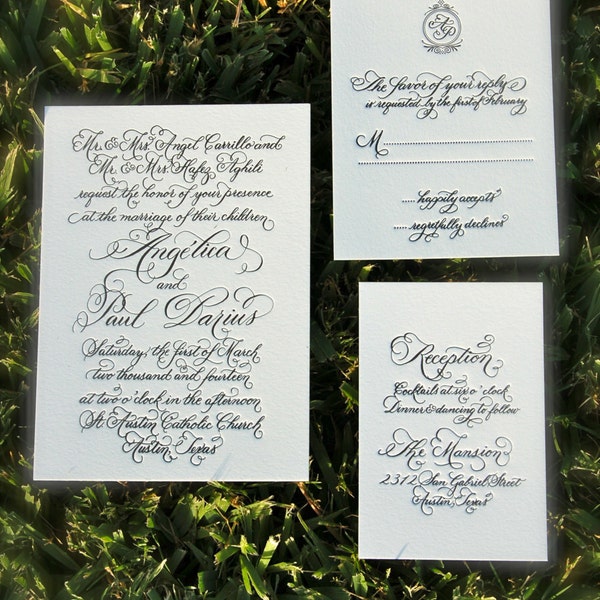 Mr. & Mrs. Angel Carrillo and
Mr. & Mrs. Hafez Aghili
request the honor of your presence
at the marriage of their children
Angélica
and
Paul Darius
Saturday, the first of March
two thousand and fourteen
at two o'clock in the afternoon
St Austin Catholic Church
Austin, Texas
AP
The favor of your reply
is requested by the first of February
M
happily accepts
regretfully declines
Reception
Cocktails at six o'clock
Dinner & dancing to follow
The Mansion
2312 San Gabriel Street
Austin, Texas